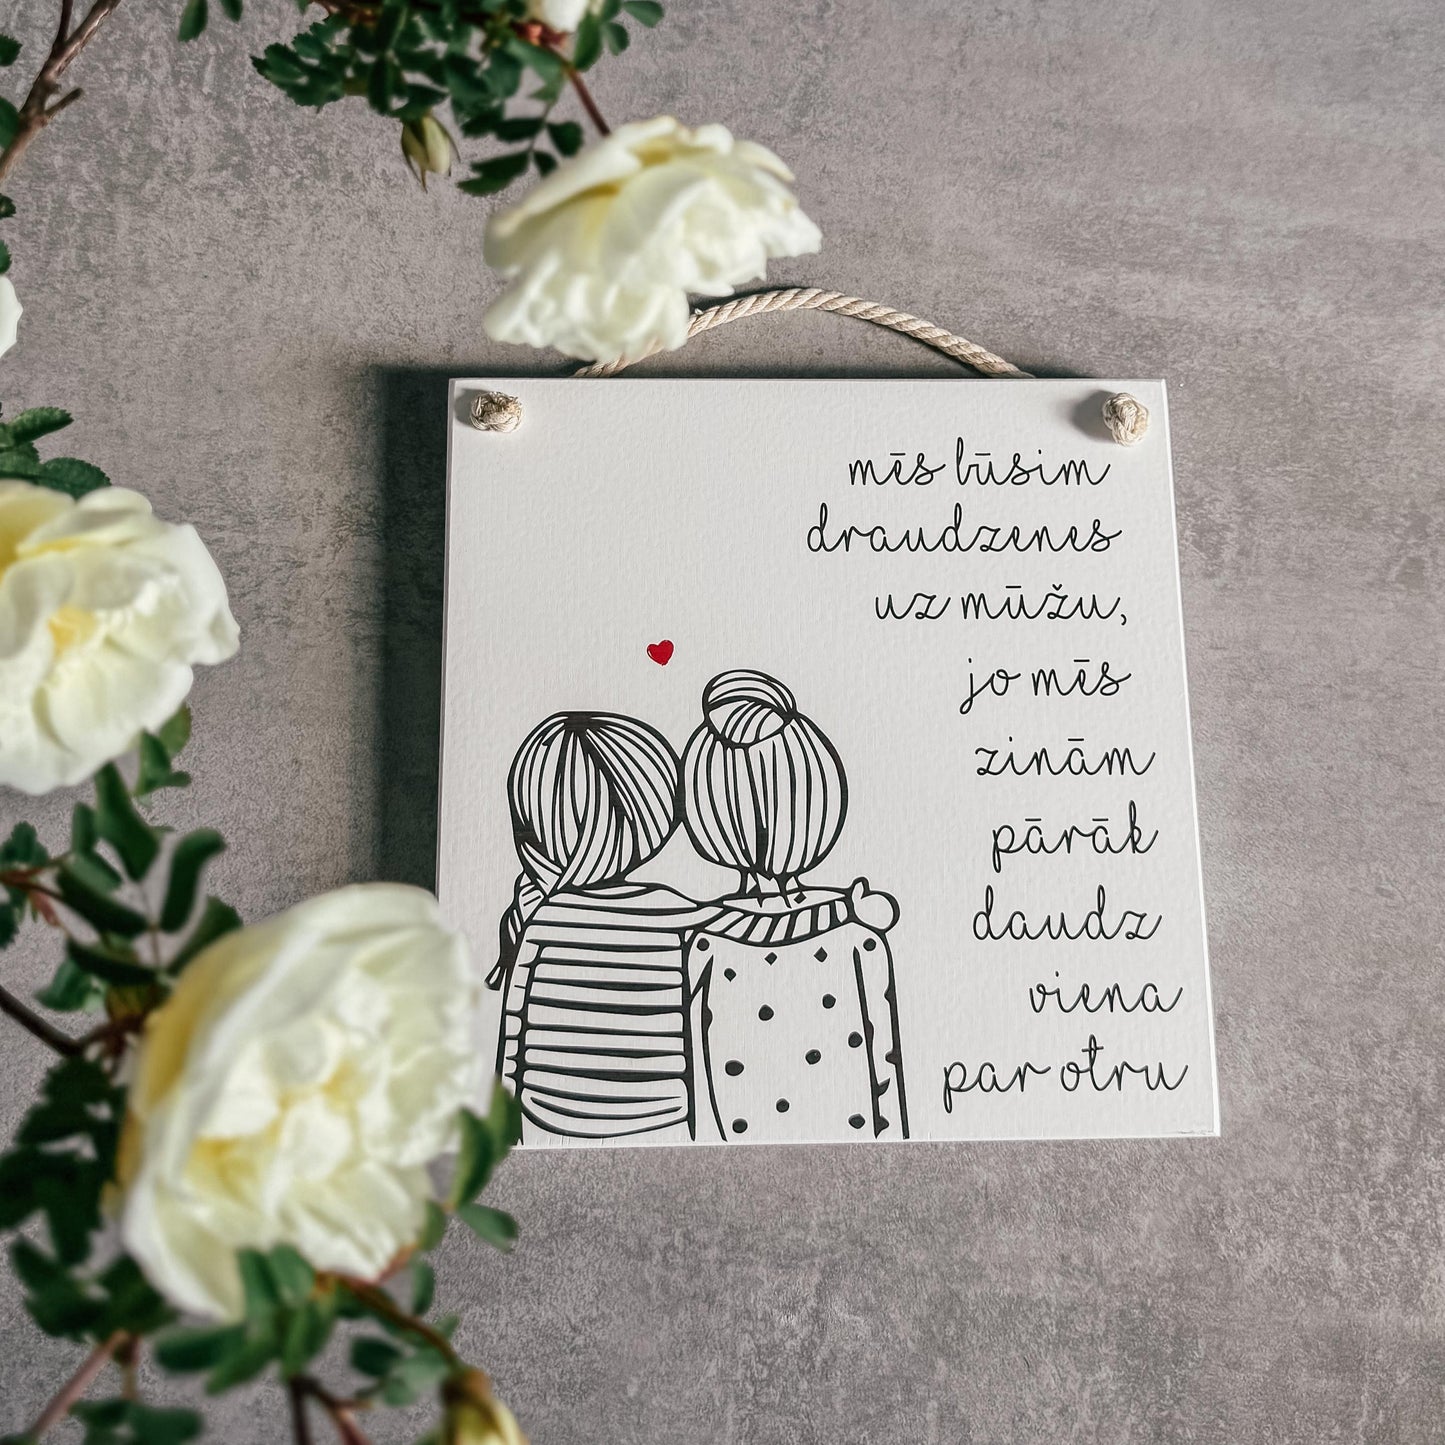 mēs būsim
draudzenes
uz mūžu,
jo mēs
zinām
pārāk
daudz
viena
par otru